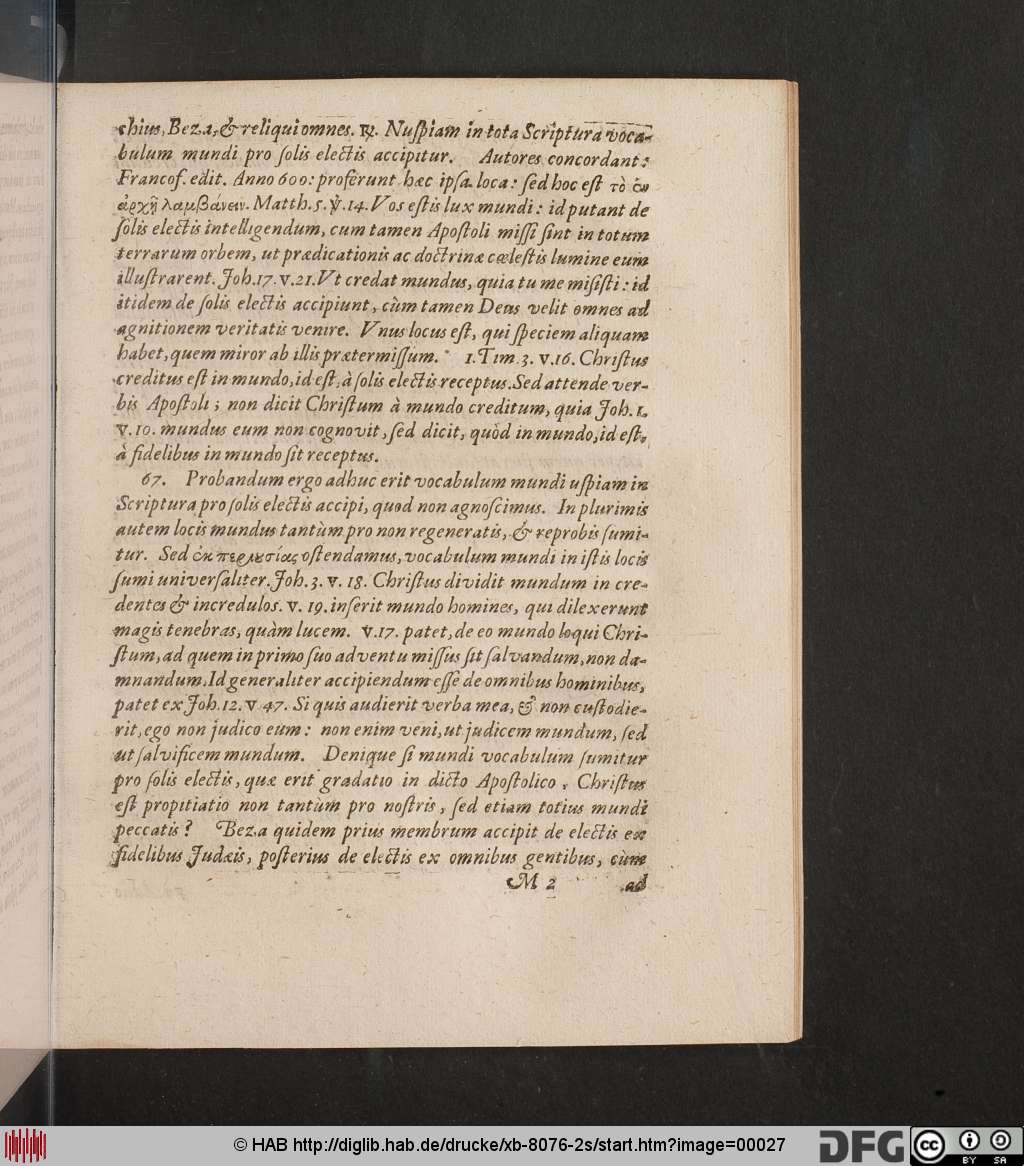 chius, Beza, & reliqui omnes. ℟. Nuſpiam in tota Scriptura voca-
bulum mundi pro ſolis electis accipitur. Autores concordant:
Francof. edit. Anno 600: proferunt hæc ipſa loca: ſed hoc eſt τὸ ἐν
ἀρχῇ λαμβάνειν. Matth. 5. ℣. 14. Vos eſtis lux mundi: id putant de
ſolis electis intelligendum, cum tamen Apoſtoli miſſi ſint in totum
terrarum orbem, ut prædicationis ac doctrinæ cœleſtis lumine eum
illuſtrarent. Joh. 17. v. 21. Vt credat mundus, quia tu me miſiſti: id
itidem de ſolis electis accipiunt, cùm tamen Deus velit omnes ad
agnitionem veritatis venire. Vnus locus eſt, qui ſpeciem aliquam
habet, quem miror ab illis prætermiſſum. 1. Tim. 3. v. 16. Chriſtus
creditus eſt in mundo, id eſt, à ſolis electis receptus. Sed attende ver-
bis Apoſtoli; non dicit Chriſtum à mundo creditum, quia Joh. 1.
v. 10. mundus eum non cognovit, ſed dicit, quòd in mundo, id eſt,
à fidelibus in mundo ſit receptus.
67. Probandum ergo adhuc erit vocabulum mundi uſpiam in
Scriptura pro ſolis electis accipi, quod non agnoſcimus. In plurimis
autem locis mundus tantùm pro non regeneratis, & reprobis ſumi-
tur. Sed ἐκ περιουσίας oſtendamus, vocabulum mundi in iſtis locis
ſumi univerſaliter. Joh. 3. v. 18. Chriſtus dividit mundum in cre-
dentes & incredulos. v. 19. inſerit mundo homines, qui dilexerunt
magis tenebras, quàm lucem. v. 17. patet, de eo mundo loqui Chri-
ſtum, ad quem in primo ſuo adventu miſſus ſit ſalvandum, non da-
mnandum. Id generaliter accipiendum eſſe de omnibus hominibus,
patet ex Joh. 12. v 47. Si quis audierit verba mea, & non cuſtodie-
rit, ego non judico eum: non enim veni, ut judicem mundum, ſed
ut ſalvificem mundum. Denique ſi mundi vocabulum ſumitur
pro ſolis electis, quæ erit gradatio in dicto Apoſtolico, Chriſtus
eſt propitiatio non tantùm pro noſtris, ſed etiam totius mundi
peccatis? Beza quidem prius membrum accipit de electis ex
fidelibus Judæis, poſterius de electis ex omnibus gentibus, cùm
M 2 ad
© HAB http://diglib.hab.de/drucke/xb-8076-2s/start.htm?image=00027
DFG cc BY SA